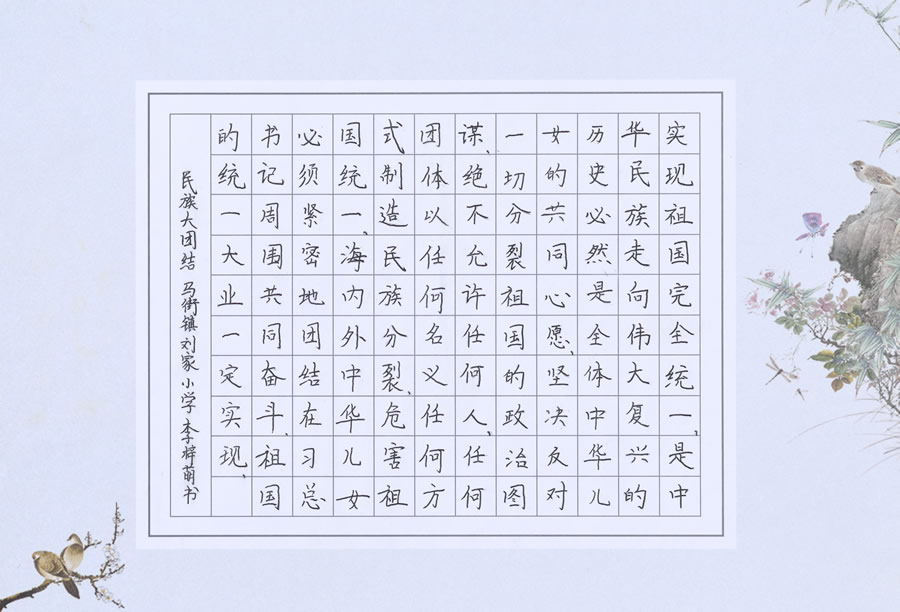 实现祖国完全统一，是中
华民族走向伟大复兴的
历史必然是全体中华儿
女的共同心愿，坚决反对
一切分裂祖国的政治图
谋，绝不允许任何人，任何
团体以任何名义任何方
式制造民族分裂，危害祖
国统一，海内外中华儿女
必须紧密地团结在习总
书记周围共同奋斗，祖国
的统一大业一定实现，
民族大团结 马街镇刘家小学 李梓萌书